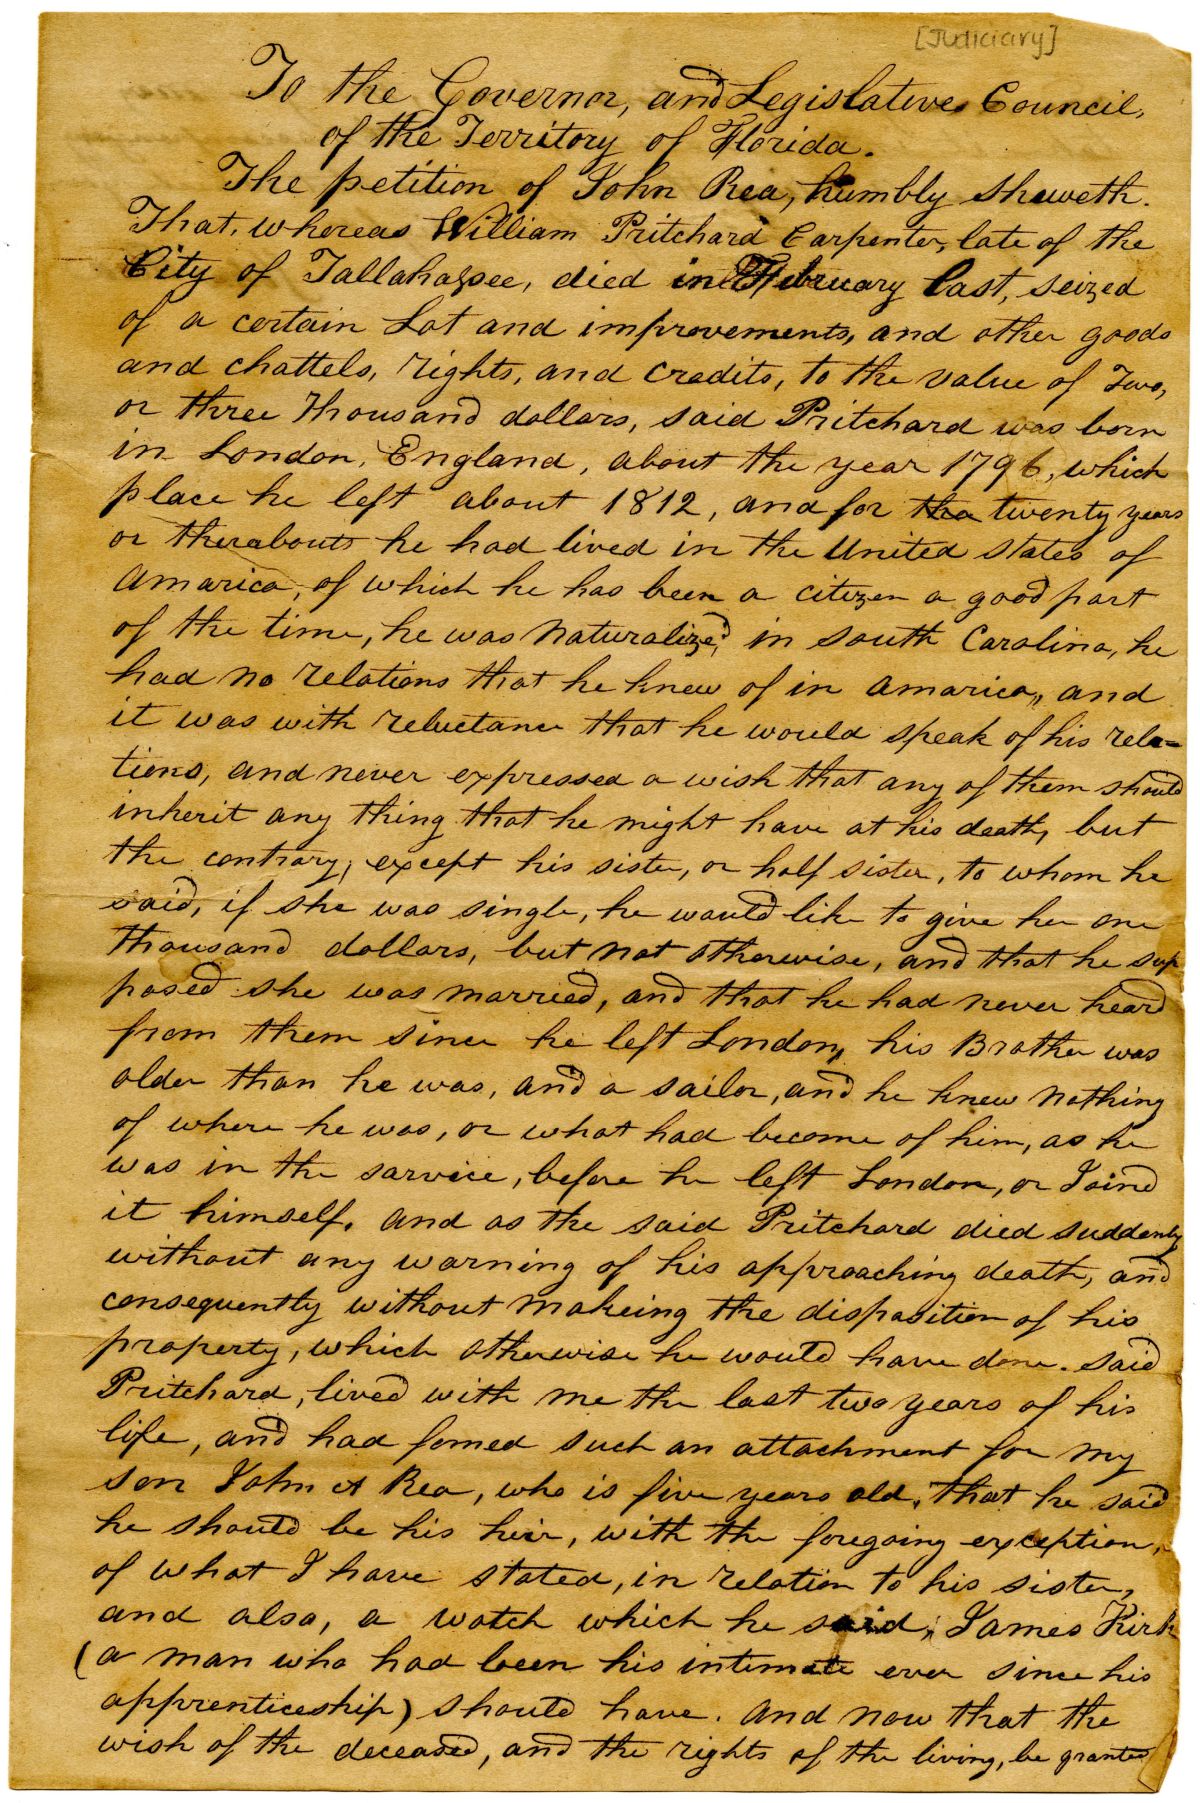 [Judiciary]
To the Governor, and Legislative Council,
of the Territory of Florida.
The petition of John Rea, humbly sheweth.
That, whereas William Pritchard Carpenter, late of the
City of Tallahassee, died in February last, seized
of a certain Lot and improvements, and other goods
and chattels, rights, and credits, to the value of Two,
or three thousand dollars, said Pritchard was born
in London, England, about the year 1796, which
place he left about 1812, and for the twenty years
or therabouts he had lived in the United States of
Amarica, of which he has been a citezen a good part
of the time, he was naturalized, in South Carolina, he
had no relations that he knew of in Amarica, and
it was with reluctance that he would speak of his rela=
tions, and never expressed a wish that any of them should
inherit any thing that he might have at his death, but
the contrary, except his sister, or half sister, to whom he
said, if she was single, he would like to give her one
thousand dollars, but not otherwise, and that he sup
posed she was married, and that he had never heard
from them since he left London, his Brother was
older than he was, and a sailor, and he knew nothing
of where he was, or what had become of him, as he
was in the sarvice, before he left London, or Joined
it himself. And as the said Pritchard died suddenly
without any warning of his approaching death, and
consequently without makeing the disposition of his
property, which otherwise he would have done. Said
Pritchard, lived with me the last two years of his
life, and had fomed such an attachment for my
son John A Rea, who is five years old, that he said
he should be his heir, with the foregoing exception,
of what I have stated, in relation to his sister,
and also, a watch which he said, James Kirk
(a man who had been his intimate ever since his
apprenticeship) should have. And now that the
wish of the deceased, and the rights of the living, be granted